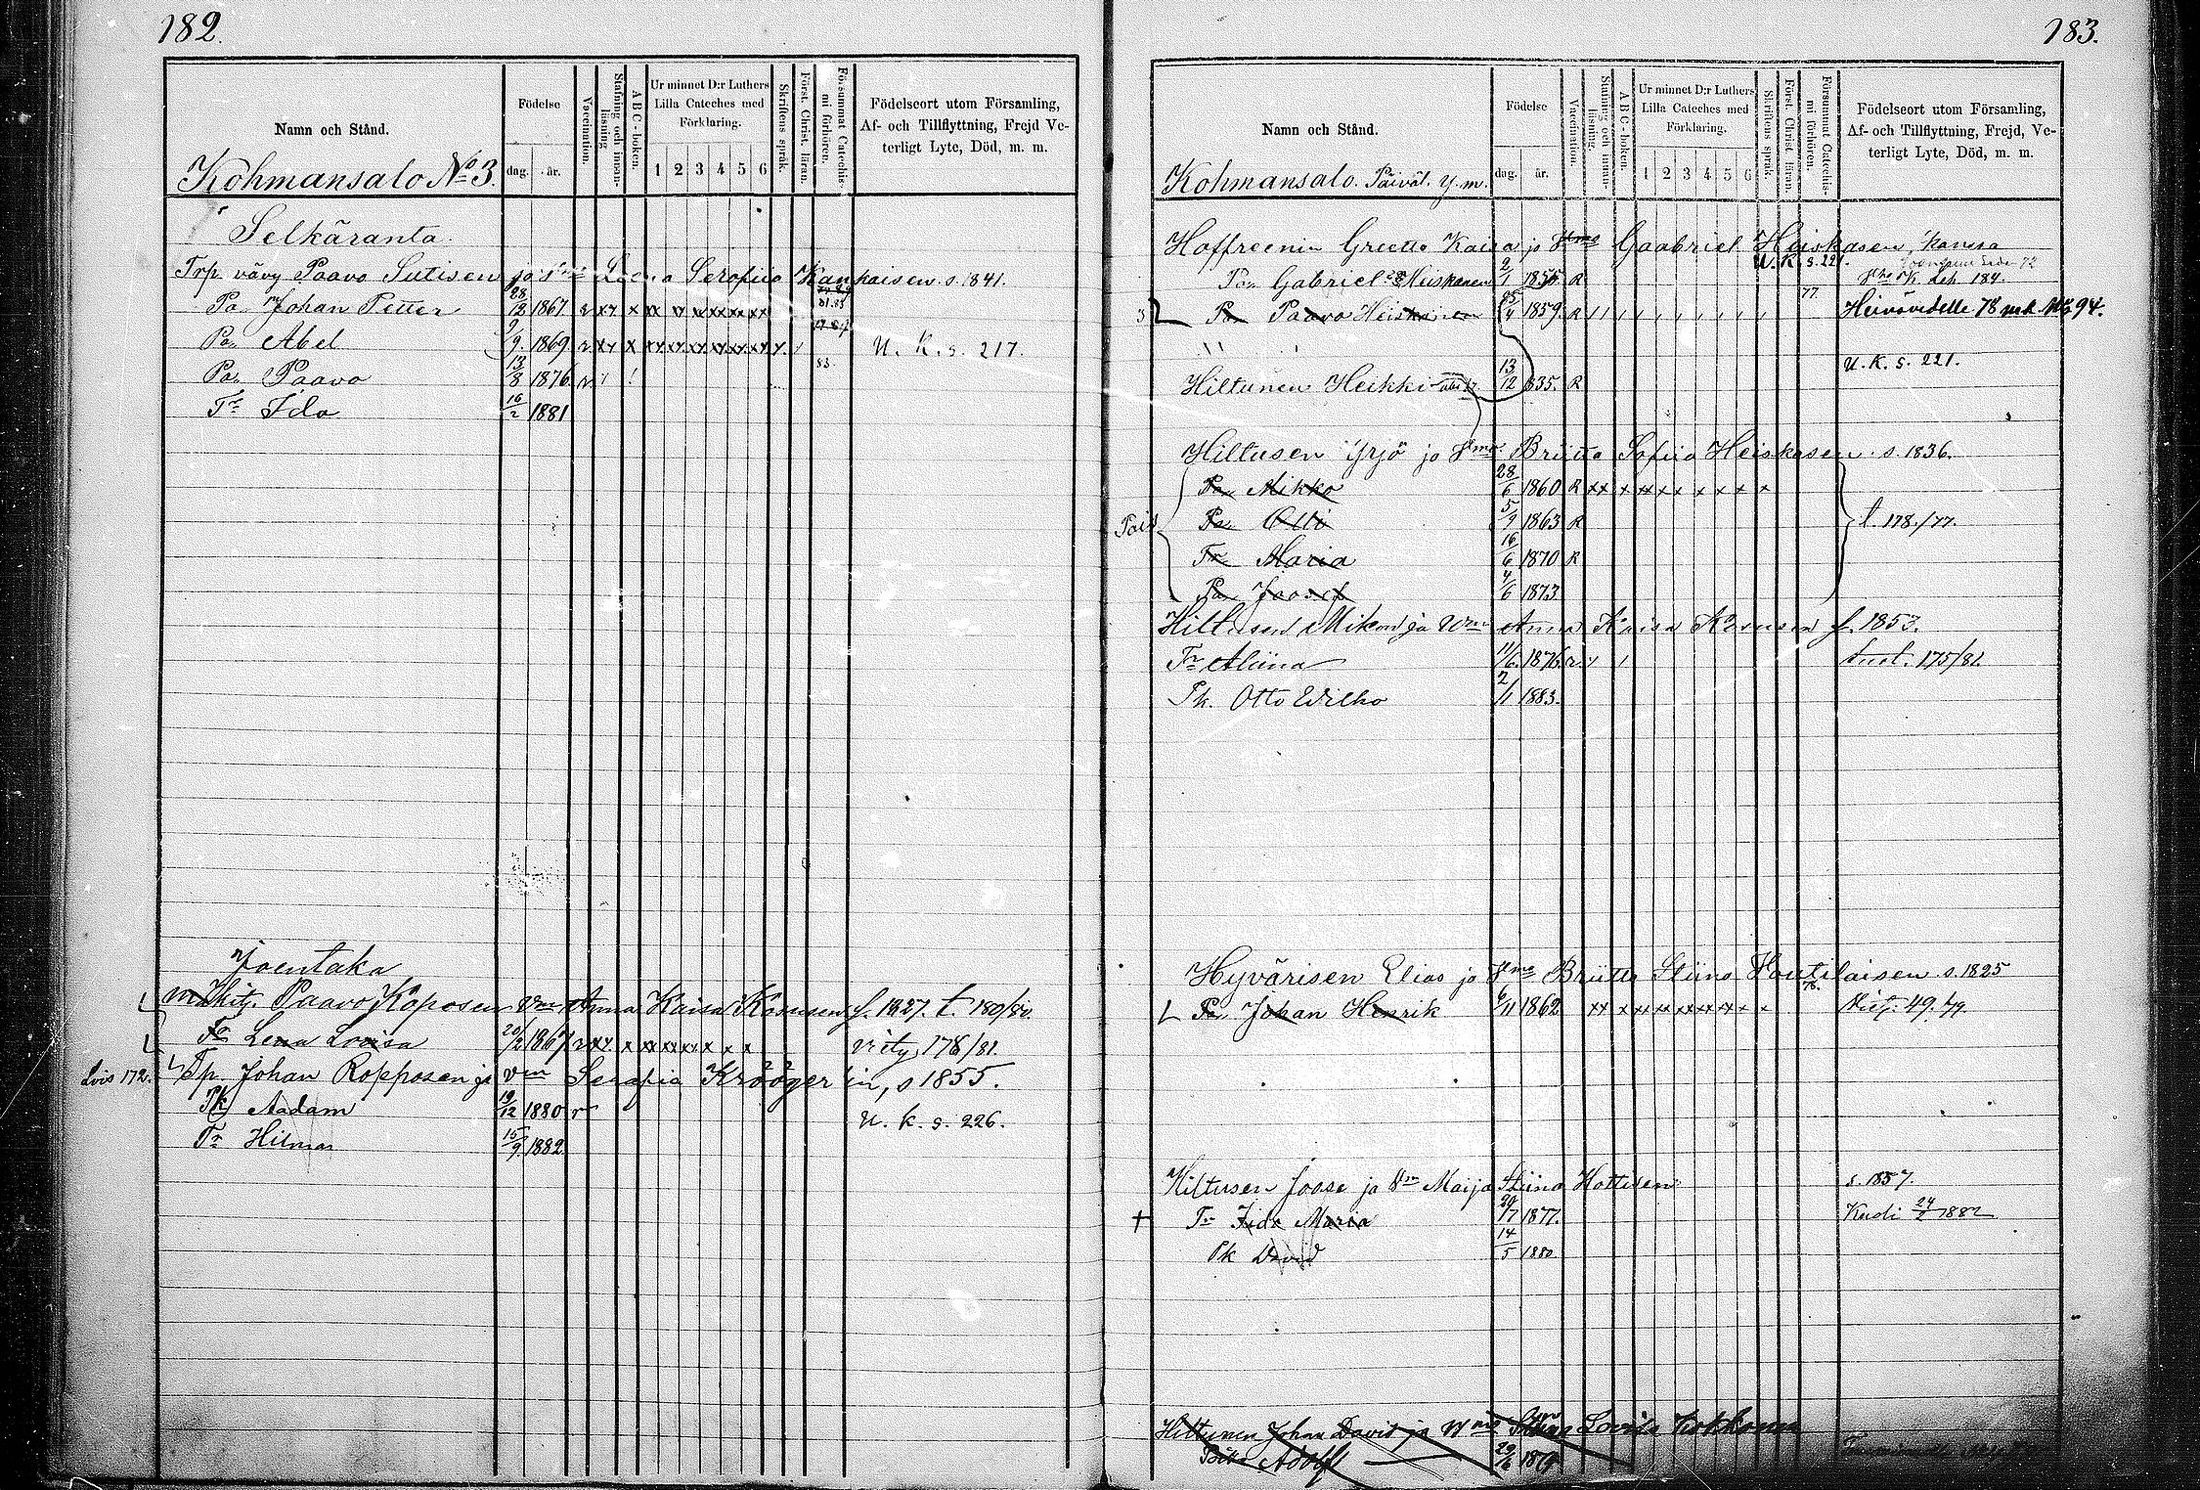 182.
Namn och Stånd.
Födelse
dag. år.
Vaccination.
Stafning och innanläsning
A B C - boken.
Ur minnet D:r Luthers Lilla Cateches med Förklaring.
1 2 3 4 5 6
Skriftens språk.
Först. Christ. läran.
Försummat Catechismi förhören.
Födelseort utom Församling, Af- och Tillflyttning, Frejd Veterligt Lyte, Död, m. m.
Kohmansalo No 3.
Selkäranta.
Trp. vävy Paavo Sutisen ja Leena Serafiia Kauhaisen s. 1841.
Pa Johan Petter 28/12 1867
Pa Abel 9/9 1869 U. K. s. 217.
Pa Paavo 13/8 1876
Tr Ida 16/2 1881
Joentaka
Paavo Koposen Anna Kaisa Kosusen f. 1827. t. 180/80.
Tr Lena Lovisa 20/2 1867 viety 178/81.
Lois 172. Tp. Johan Ropposen ja vm Serafia Krööger'in, s 1855.
Pk Aadam 19/12 1880 r U. K. s. 226.
Tr Hilma 15/9 1882
183.
Namn och Stånd.
Födelse
dag. år.
Vaccination.
Stafning och innanläsning.
A B C - boken.
Ur minnet D:r Luthers Lilla Cateches med Förklaring.
1 2 3 4 5 6
Skriftens språk.
Först. Christ. läran.
Försummat Catechismi förhören.
Födelseort utom Församling, Af- och Tillflyttning, Frejd, Veterligt Lyte, Död, m. m.
Kohmansalo. Päiväl. y. m.
Hoffreenin Greetta Kaisa ja Gaabriel Heiskasen kanssa
U. K. s. 221.
Poi Gabriel Heiskanen 2/1 1855 R
Pa Paavo Heiskanen 25/4 1859 R 77. Heinävedelle 78 94.
U. K. s. 221.
Hiltunen Heikki 13/12 1835. R
Hiltusen Yrjö ja Briitta Sofiia Heiskasen s. 1836.
Pa Mikko 28/6 1860 R
Pa Otto 5/9 1863 R t. 178./77.
Tr Maria 16/6 1870 R
Pa Joosef 4/6 1873
Hiltusen Mikon ja Wm Anna Kaisa Kosusen f. 1853.
Tr Aliina 11/6 1876 175/81.
Pk. Otto Vilho 2/1 1883.
Hyvärisen Elias ja Briitta Stiina Poutilaisen s. 1825
Pa Johan Henrik 6/11 1862 Viet. 49. 79.
Hiltusen Joose ja Vm Maija Stiina Hottisen s. 1857.
Tr Iida Maria 29/7 1877. Kuoli 24/2 1882
Pk David 14/5 1880
Hiltunen Johan David ja Lovisa Kokkonen
Adolf 29/6